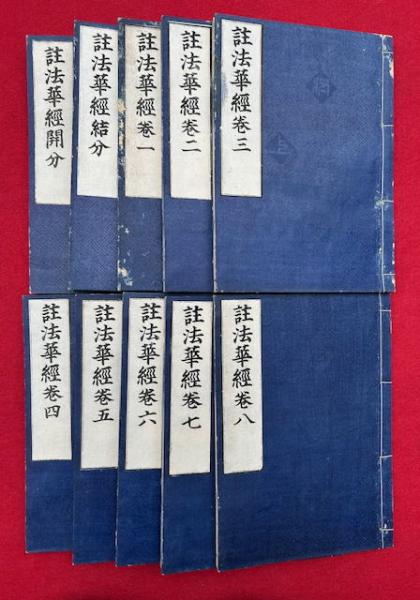 註法華經開分
註法華經結分
註法華經卷一
註法華經卷二
註法華經卷三
註法華經卷四
註法華經卷五
註法華經卷六
註法華經卷七
註法華經卷八